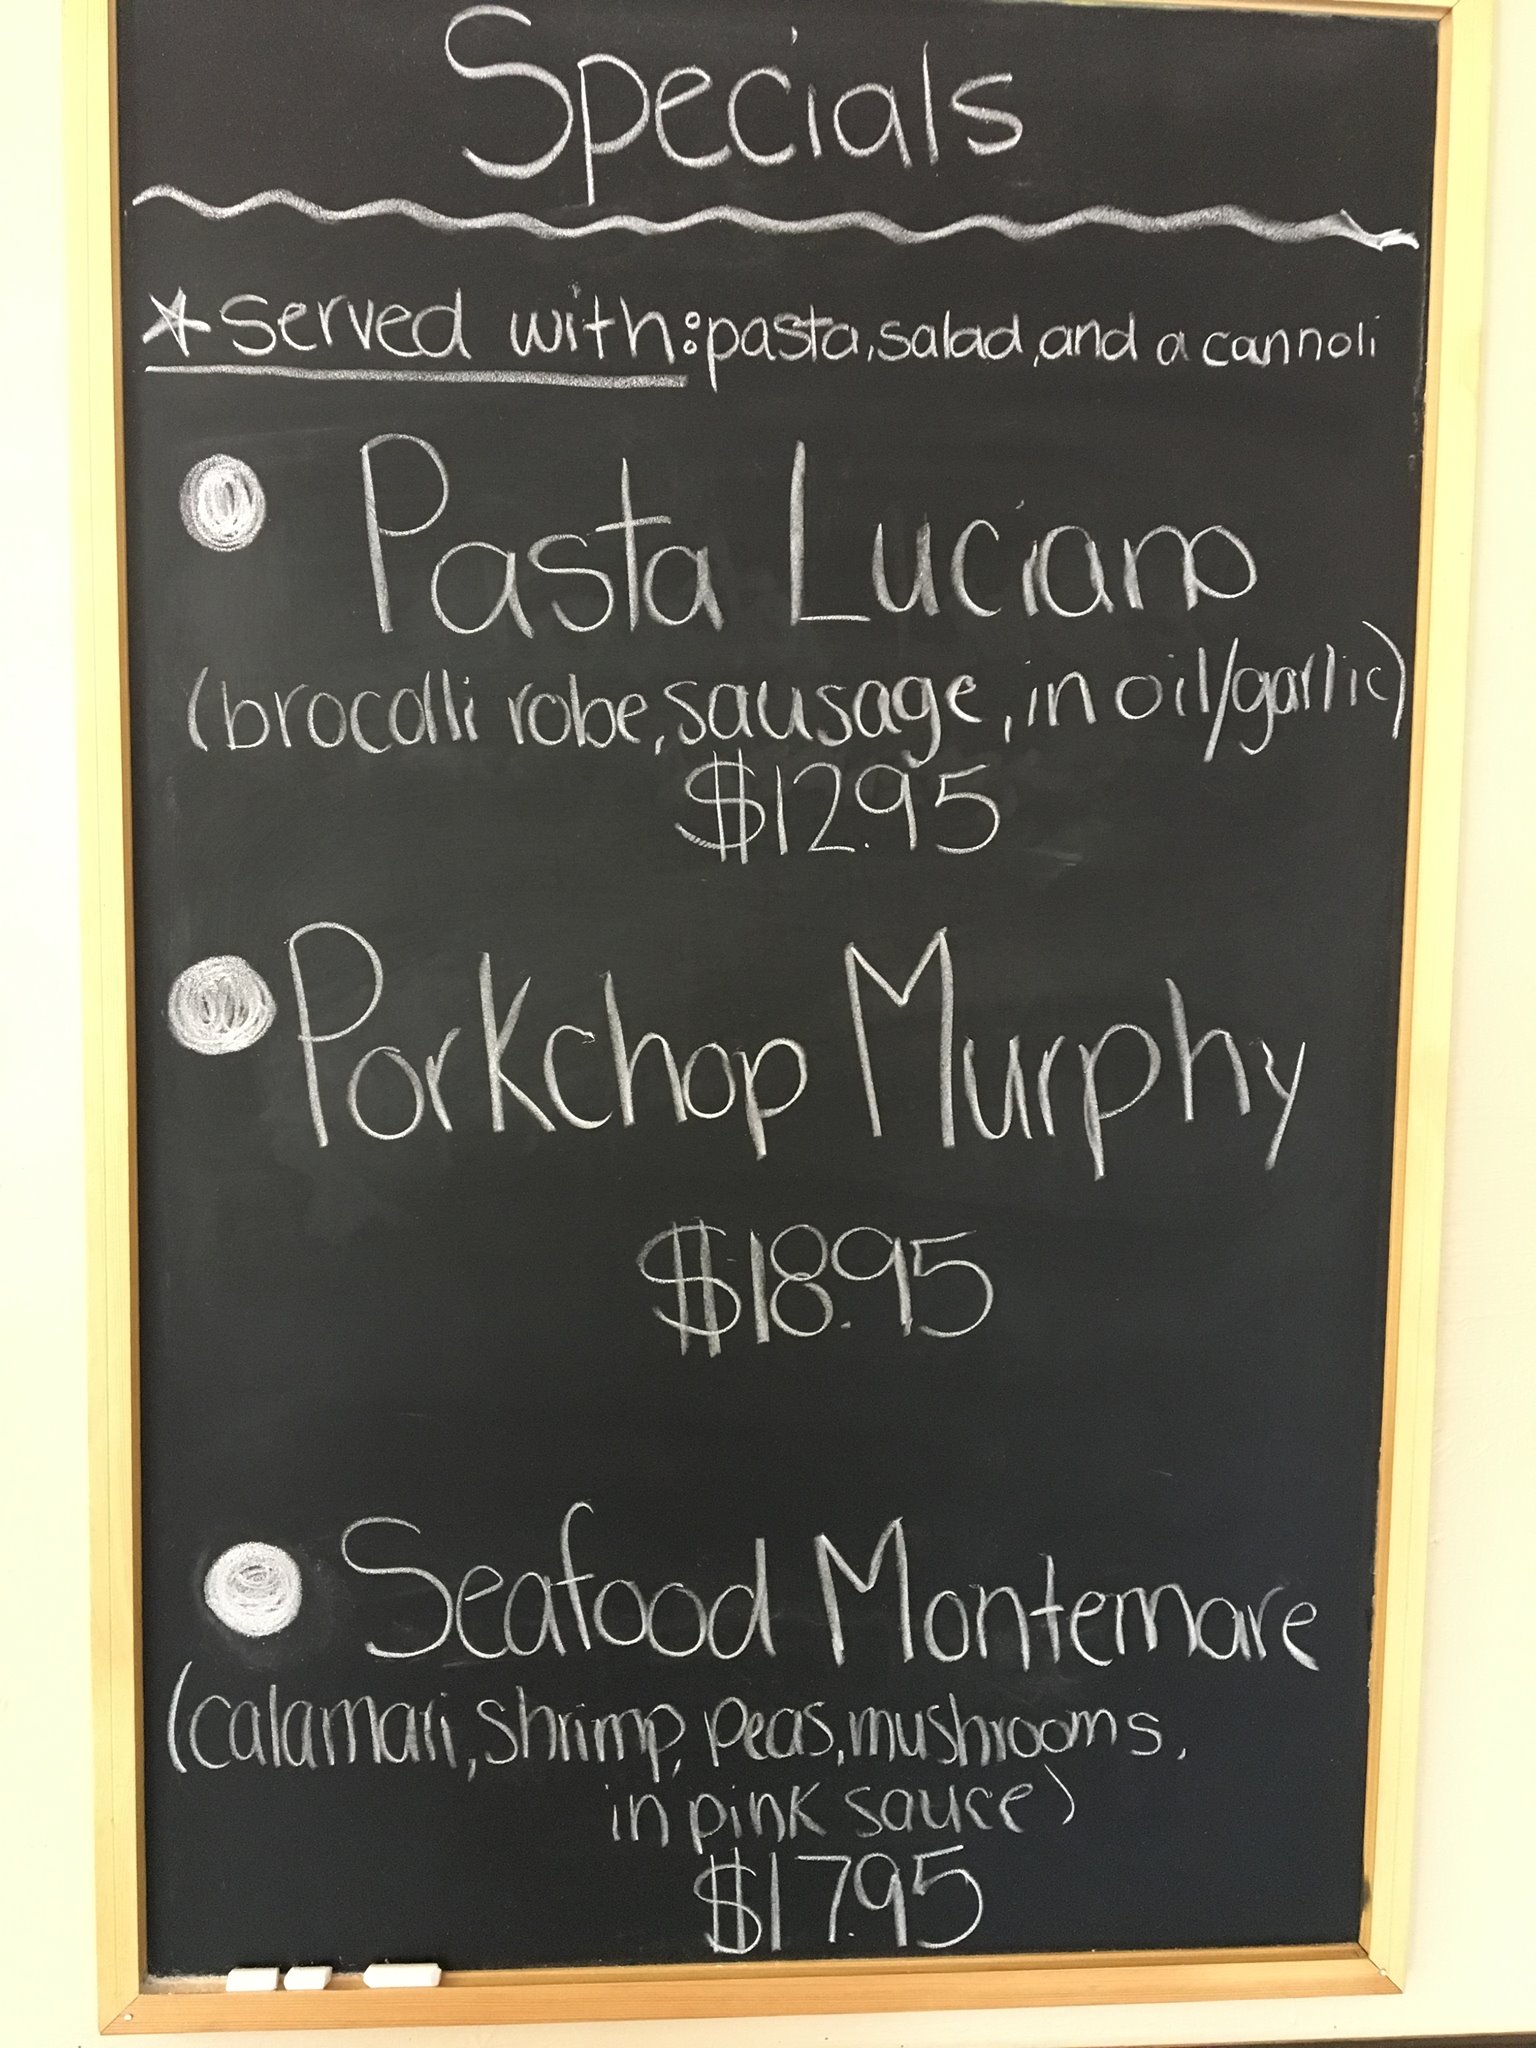 Specials
*served with: pasta, salad, and a cannoli
Pasta Luciano
(brocolli robe, sausage, in oil/garlic)
$12.95
Porkchop Murphy
$18.95
Seafood Montemare
(calamari, shrimp, peas, mushrooms,
in pink sauce)
$17.95